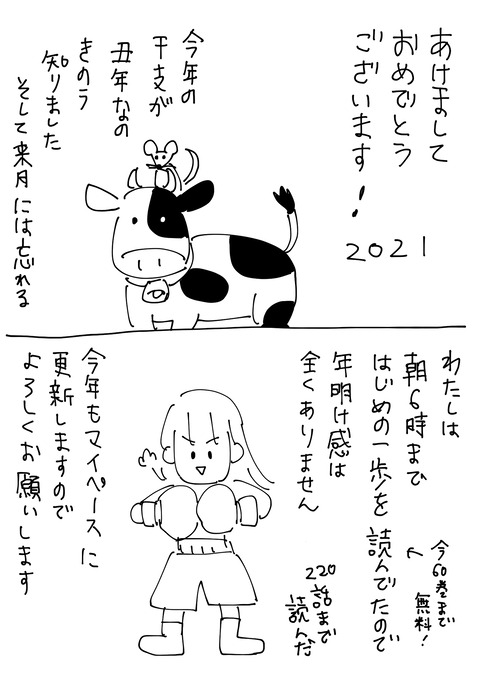 あけまして
おめでとう
ございます!
2021
今年の
干支が
丑年なの
きのう
知りました
そして来月には忘れる
わたしは
朝6時まで
はじめの一歩を
読んでたので
今60巻まで
無料!
年明け感は
全くありません
220
話まで
読んだ
今年もマイペースに
更新しますので
よろしくお願いします